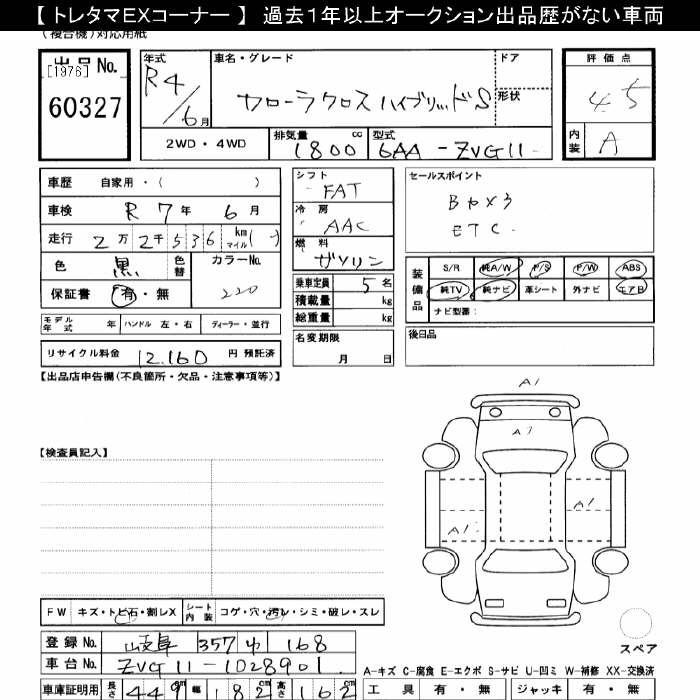 【 トレタマEXコーナー 】 過去1年以上オークション出品歴がない車両
(複合機)対応用紙
出品No.
[1976]
60327
年式
R4/6月
車名・グレード
カローラクロス ハイブリッドS
ドア
形状
評価点
4.5
内装
A
2WD・4WD
排気量 1800 cc
型式 6AA-ZVG11
車歴 自家用・( )
車検 R7年 6月
走行 2万2千536 km マイル( )
色 黒 色替
カラーNo. 220
保証書 有・無
モデル年式 年 ハンドル 左・右 ディーラー・並行
リサイクル料金 12,160 円 預託済
シフト FAT
冷房 AAC
燃料 ガソリン
乗車定員 5 名
積載量 kg
総重量 kg
名変期限
月 日
セールスポイント
ETC.
装備品
S/R 純A/W P/S P/W ABS
純TV 純ナビ 革シート 外ナビ エアB
ナビ型番:
後日品
【出品店申告欄(不良箇所・欠品・注意事項等)】
【検査員記入】
A1
A1
A1
FW キズ・トビ石・割レX シート内装 コゲ・穴・汚レ・シミ・破レ・スレ
登録No. 岐阜 357 168
車台No. ZVG11-1028901
スペア
A-キズ C-腐食 E-エクボ S-サビ U-凹ミ W-補修 XX-交換済
車庫証明用 長さ 449 cm 幅 182 cm 高さ 162 cm
工具 有・無 ジャッキ 有・無